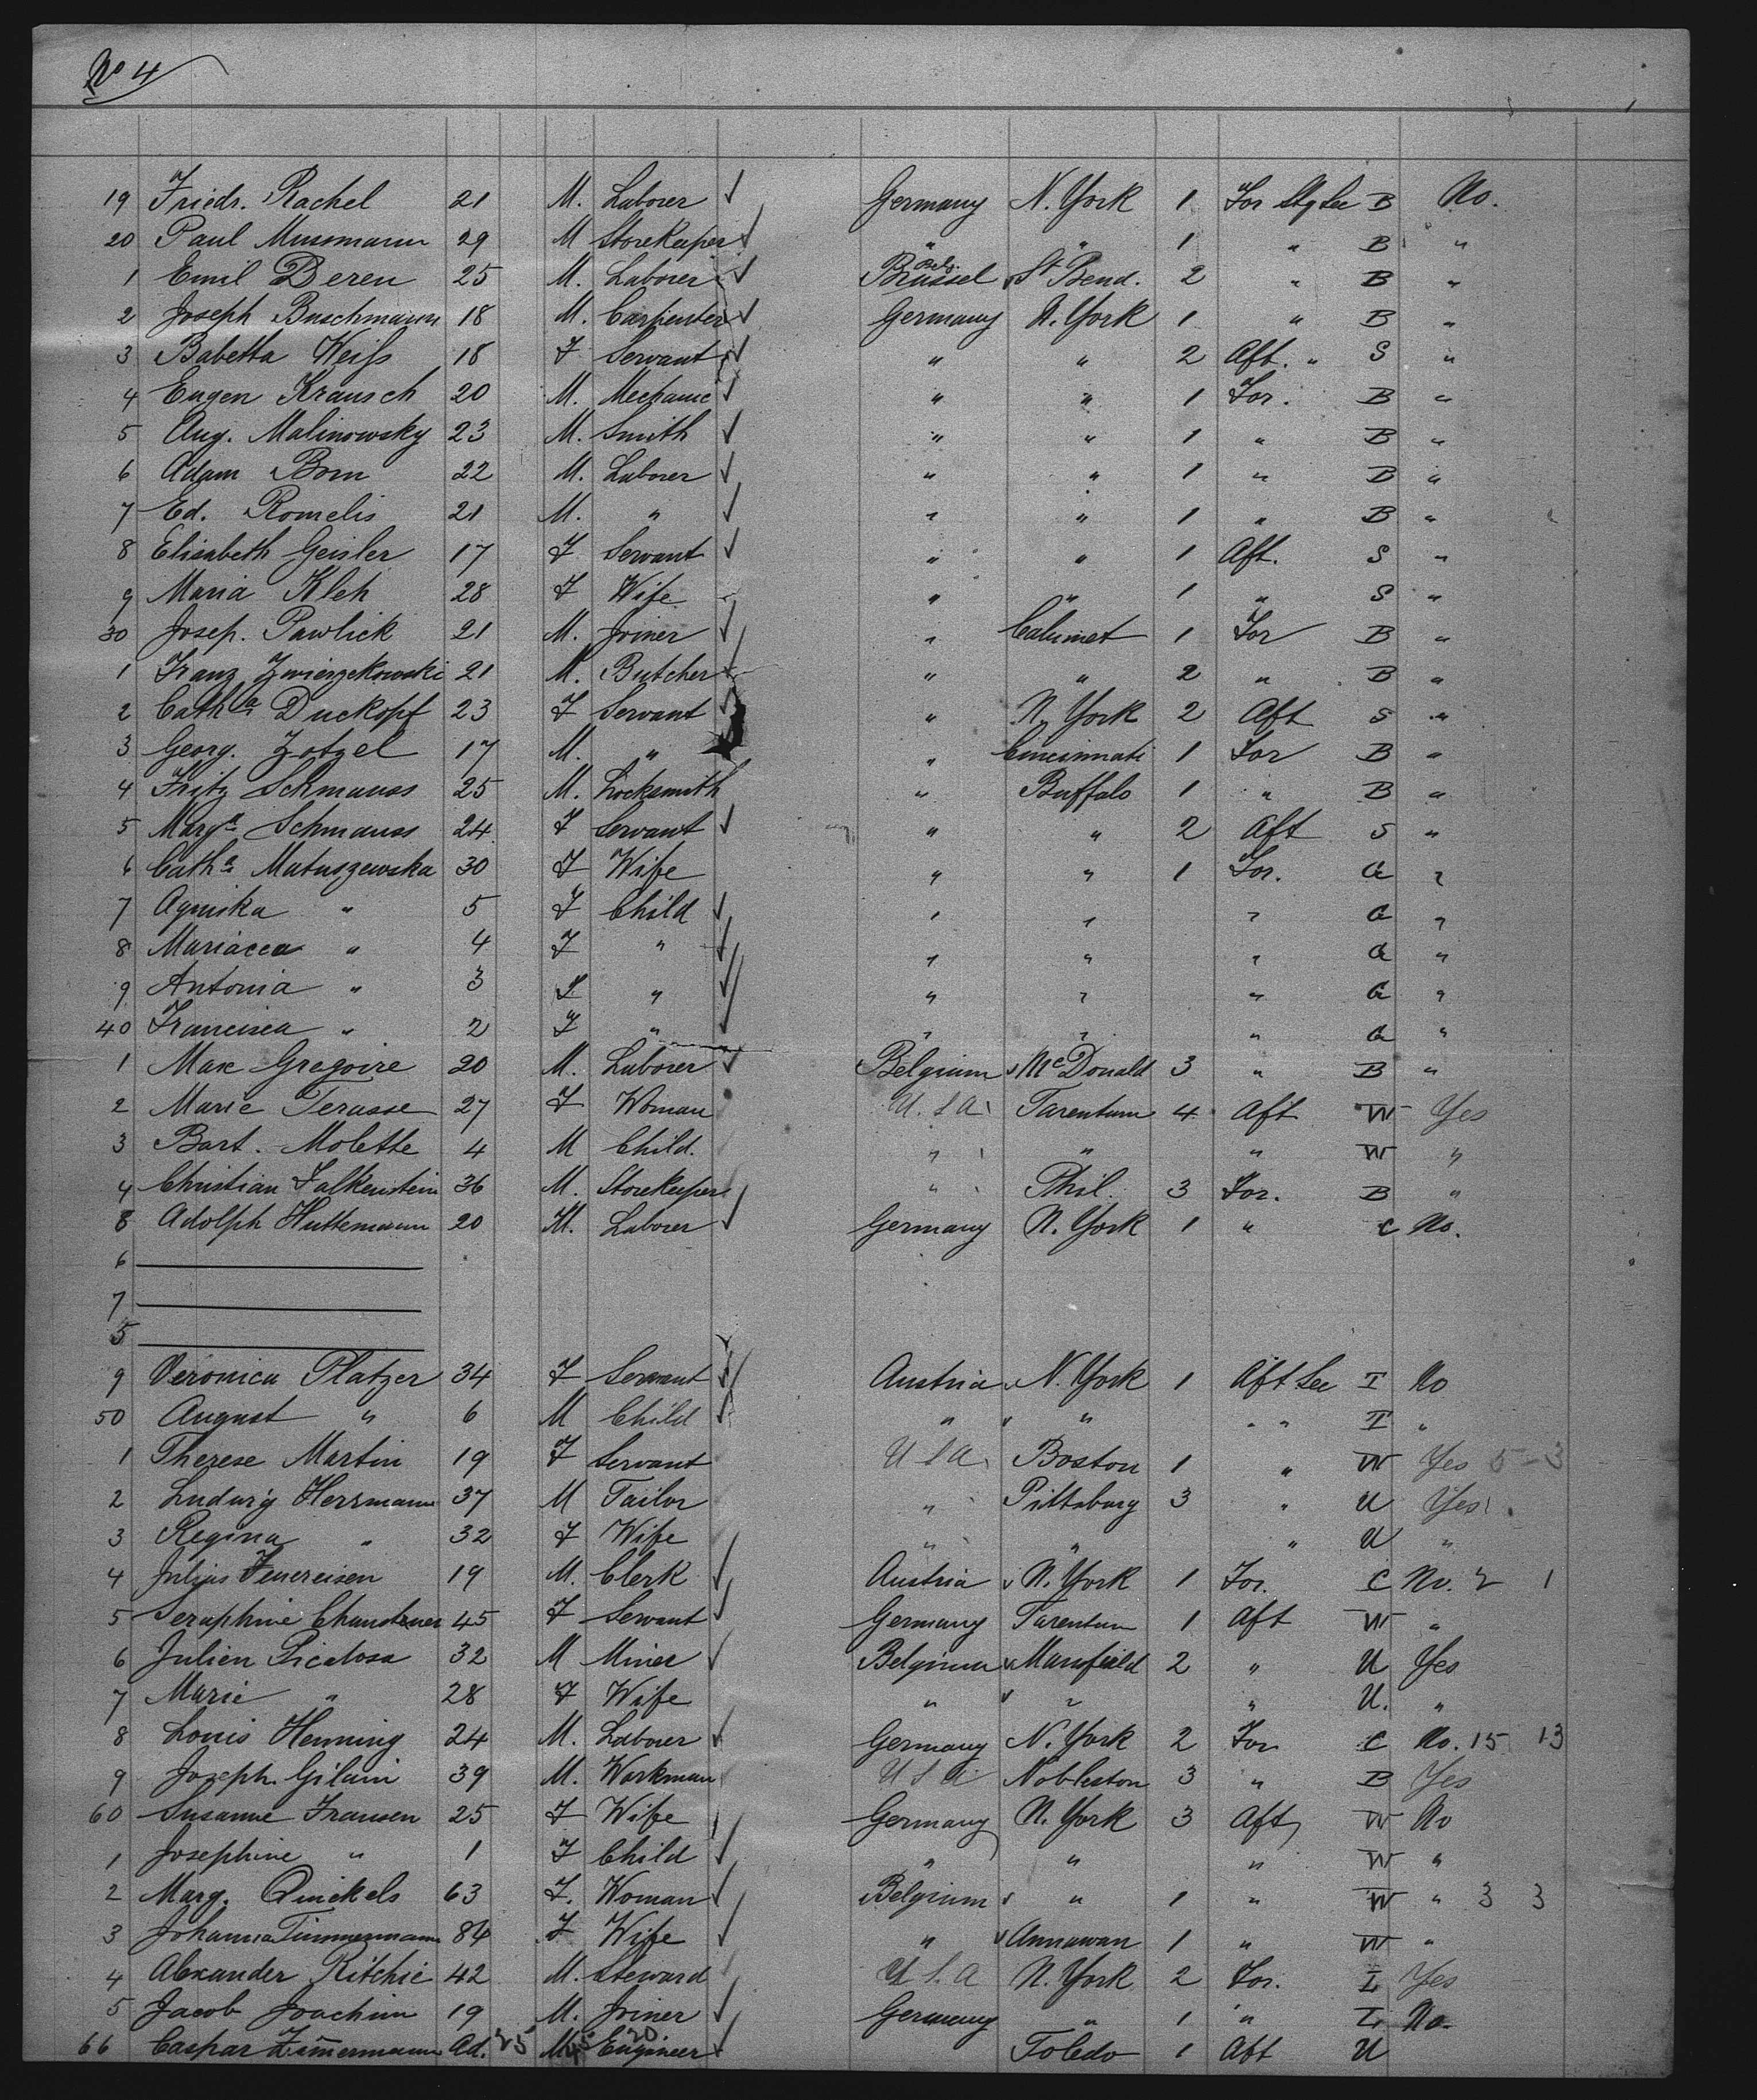 No 4
19 Friedr. Rachel 21 M. Laborer Germany N. York 1 For Stg Sec B No.
20 Paul Mussmann 29 M Storekeeper " " 1 " B "
1 Emil Deren 25 M. Laborer Brüssel Belg. St Bend. 2 " B "
2 Joseph Buschmann 18 M. Carpenter Germany N. York 1 " B "
3 Babetta Weiss 18 F Servant " " 2 Aft. " S "
4 Eugen Krausch 20 M. Mechanic " " 1 For. B "
5 Aug. Malinowsky 23 M. Smith " " 1 " B "
6 Adam Born 22 M. Laborer " " 1 " B "
7 Ed. Romelis 21 M. " " " 1 " B "
8 Elisabeth Geisler 17 F Servant " " 1 Aft. S "
9 Maria Kleh 28 F Wife " " 1 " S "
30 Josep. Pawlick 21 M. Joiner " Calumet 1 For B "
1 Franz Zwierzekowski 21 M. Butcher " " 2 " B "
2 Catha Duckopf 23 F Servant " N. York 2 Aft S "
3 Georg. Zotzel 17 M. " " Cincinnati 1 For B "
4 Fritz Schmauss 25 M. Locksmith " Buffalo 1 " B "
5 Marga Schmauss 24 F Servant " " 2 Aft S "
6 Catha Matuszewska 30 F Wife " " 1 For. G "
7 Agniska " 5 F Child " " " G "
8 Mariacca " 4 F " " " " G "
9 Antonia " 3 F " " " " G "
40 Francisca " 2 F " " " " G "
1 Max Gregoire 20 M. Laborer Belgium McDonald 3 " B "
2 Marie Terasse 27 F Woman U. S A Tarentum 4 Aft W Yes
3 Bart. Molette 4 M Child. " " " W "
4 Christian Falkenstein 36 M. Storekeeper " Phil. 3 For. B "
5 Adolph Huttemann 20 M. Laborer Germany N. York 1 " C No.
6
7
5
9 Veronica Platzer 34 F Servant Austria N. York 1 Aft Sec I No
50 August " 6 M Child " " " " I "
1 Therese Martin 19 F Servant U S A Boston 1 " W Yes 5 - 3
2 Ludwig Herrmann 37 M Tailor " Pittsburg 3 " U Yes
3 Regina " 32 F Wife " " " U "
4 Julius Feuereisen 19 M. Clerk Austria N. York 1 For. C No. 2 1
5 Seraphine 45 F Servant Germany Tarentum 1 Aft W "
6 Julien Picalosa 32 M Miner Belgium Mansfield 2 " U Yes
7 Marie " 28 F Wife " " " U. "
8 Louis Henning 24 M. Laborer Germany N. York 2 For C No. 15 13
9 Joseph Gilain 39 M. Workman U S A Noblestown 3 " B Yes
60 Susanne Fransen 25 F Wife Germany N. York 3 Aft W No
1 Josephine " 1 F Child " " " W "
2 Marg. Quickels 63 F. Woman Belgium " 1 " W " 3 3
3 Johanna Timmermann 84 F Wife " Annawan 1 " W "
4 Alexander Ritchie 42 M. Steward U S. A N. York 2 For. I Yes
5 Jacob Joachim 19 M. Joiner Germany " 1 " I No.
66 Caspar Zimmermann Ad. 25 M 45 Engineer 20 Toledo 1 Aft U